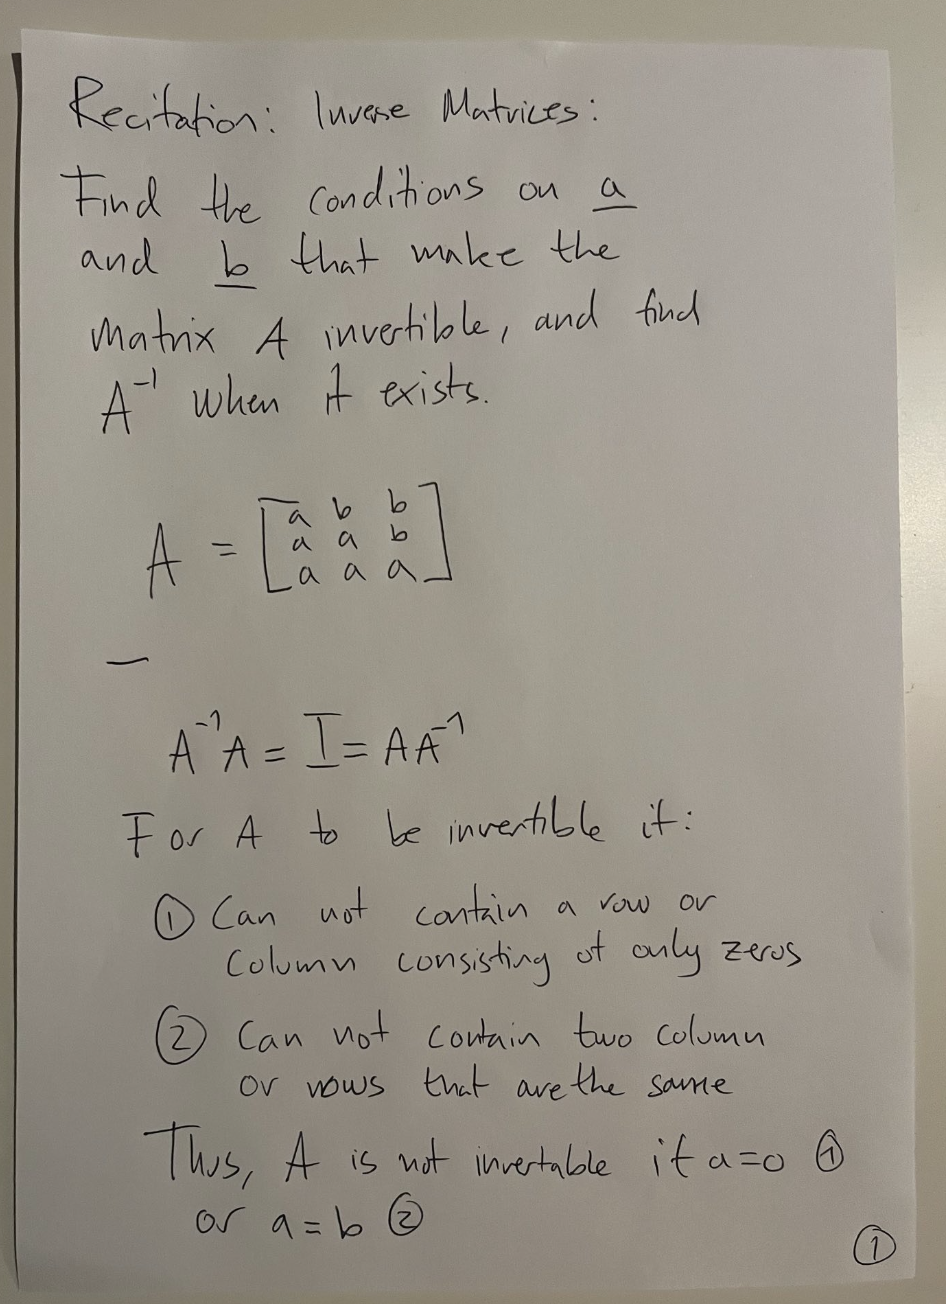 Recitation: Inverse Matrices:
Find the conditions on a
and b that make the
matrix A invertible, and find
A⁻¹ when it exists.
A = [a b b
a a b
a a a]
—
A⁻¹A = I = AA⁻¹
For A to be invertible it:
① Can not contain a row or
column consisting of only zeros
② Can not contain two column
or rows that are the same
Thus, A is not invertable if a=0 ①
or a=b ②
①